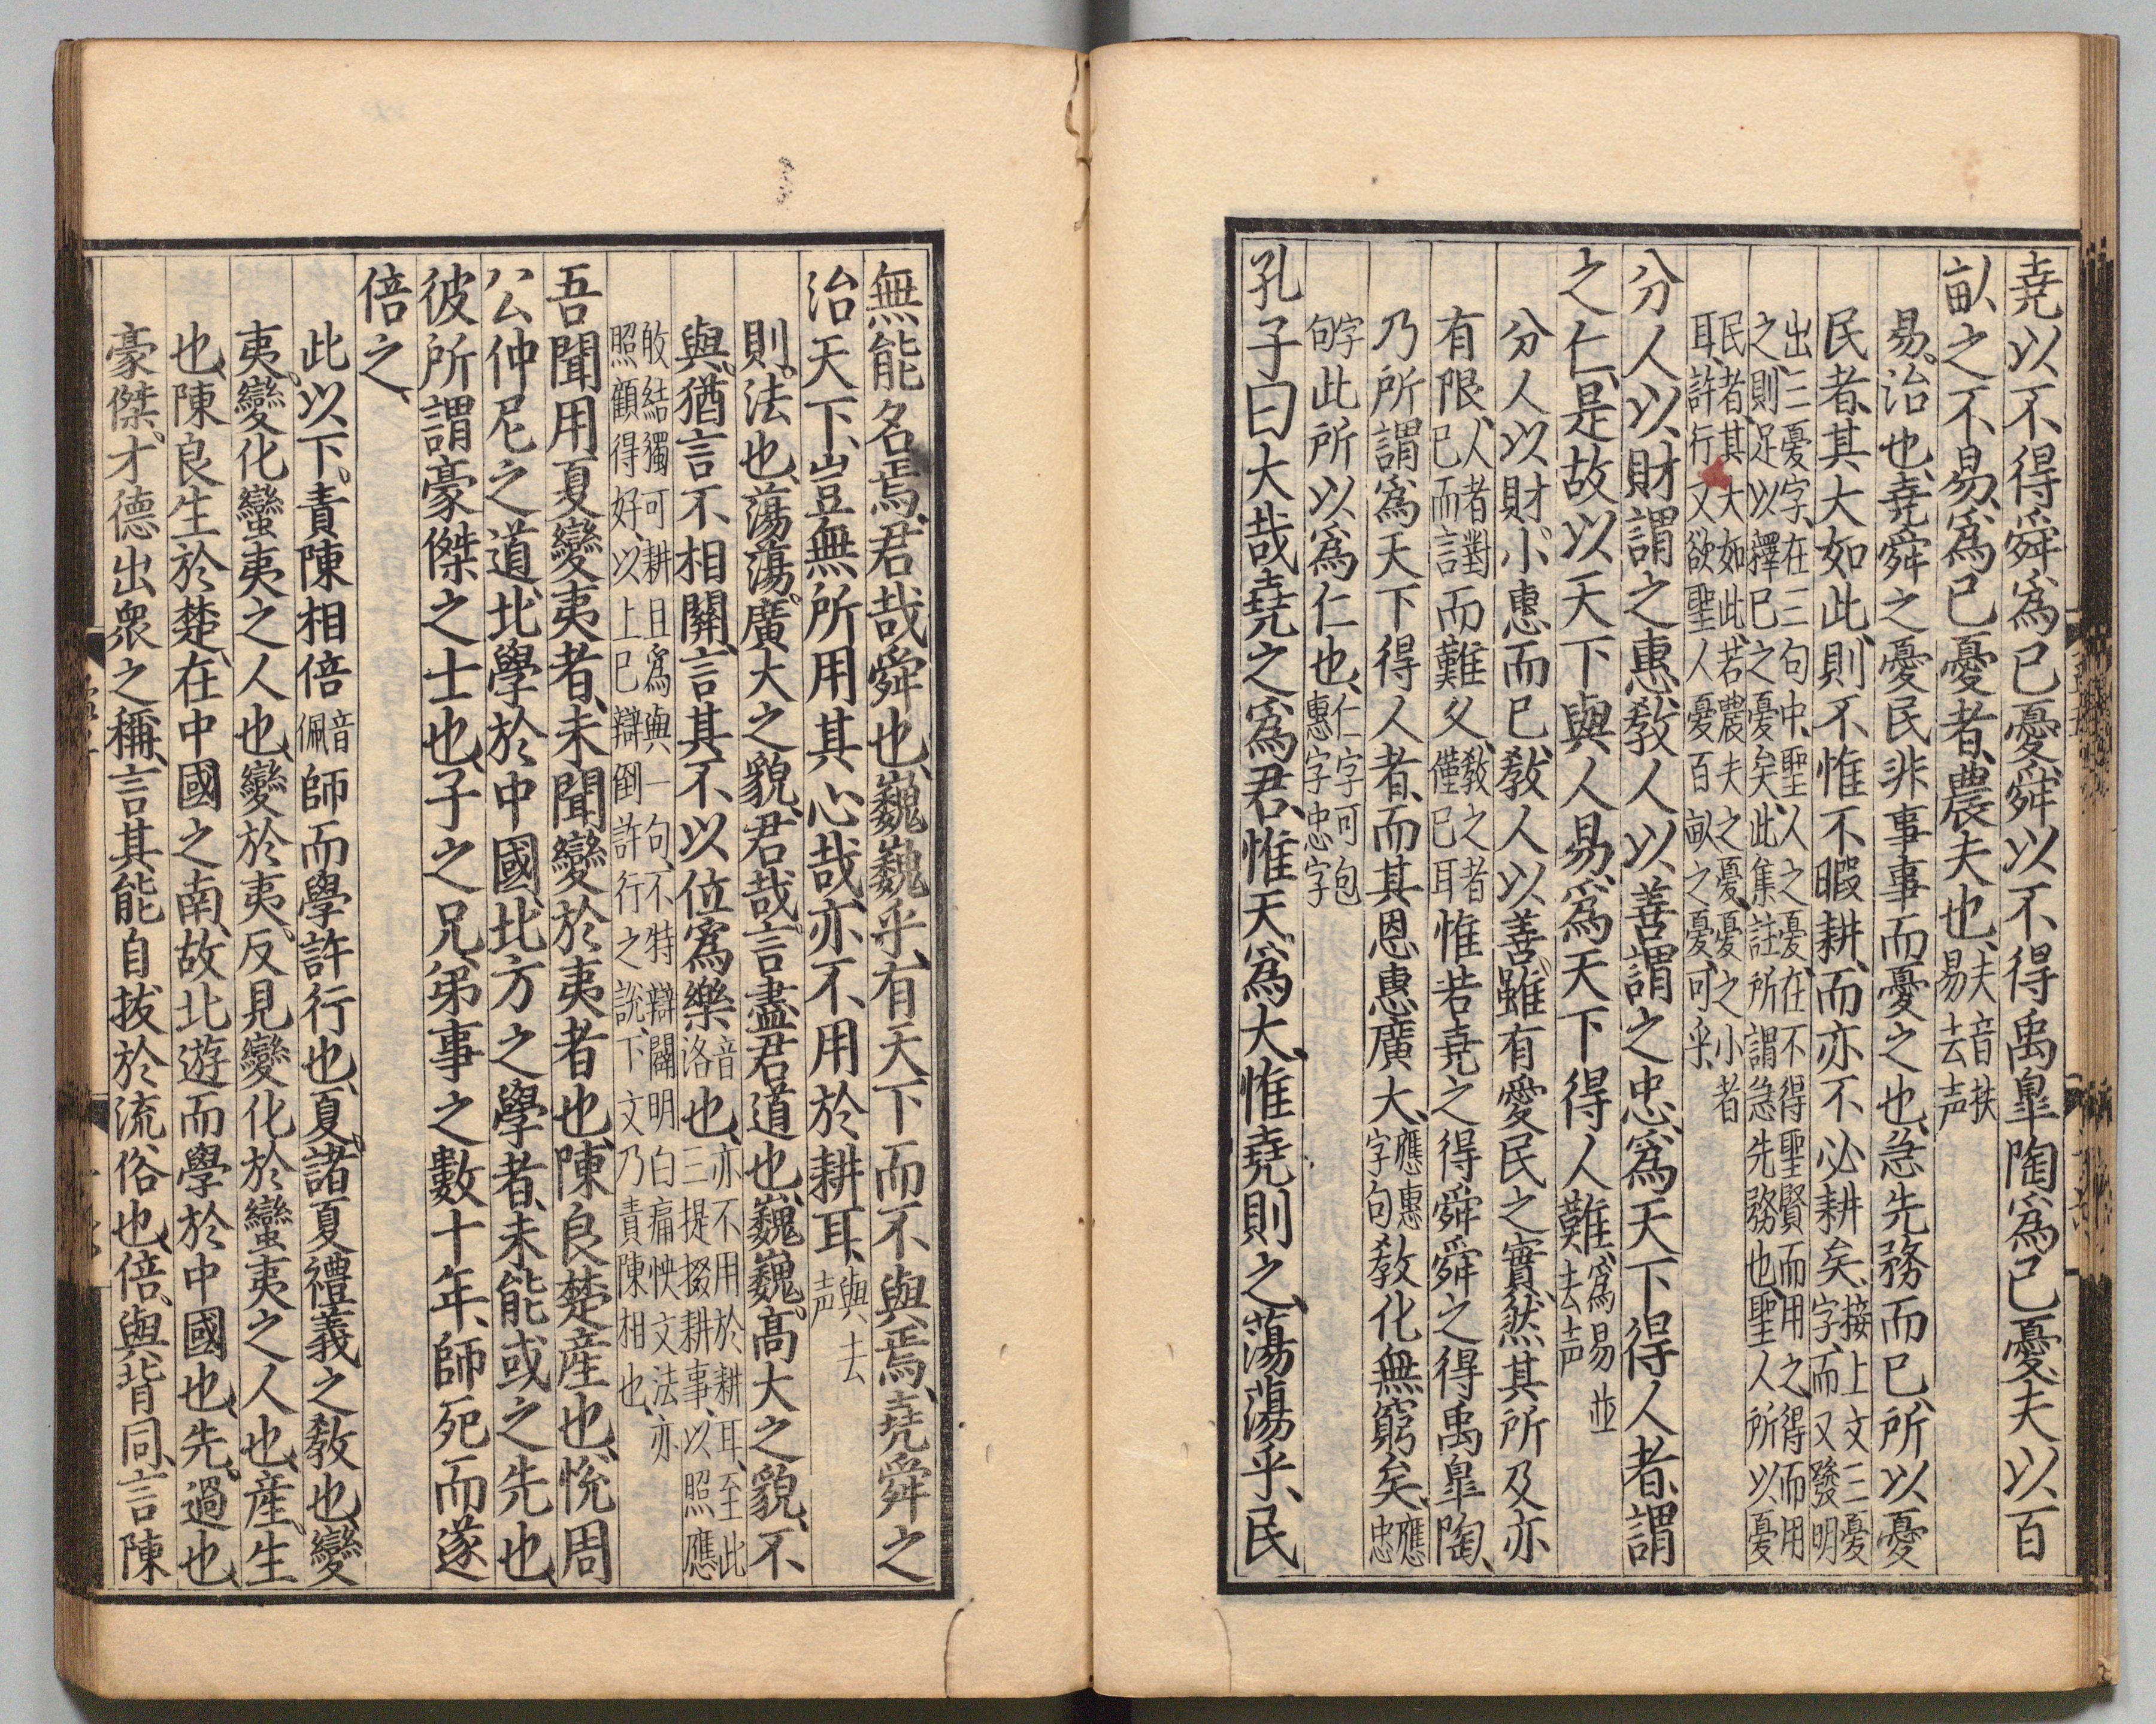 堯以不得舜爲己憂舜以不得禹皐陶爲己憂夫以百
畝之不易爲己憂者農夫也夫音扶易去声
易治也堯舜之憂民非事事而憂之也急先務而已所以憂
民者其大如此則不惟不暇耕而亦不必耕矣接上文三憂字而又發明
出三憂字在三句中聖人之憂在不得聖賢而用之得而用
之則足以釋己之憂矣此集註所謂急先務也聖人所以憂
民者其大如此若農夫之憂憂之小者
耳許行又欲聖人憂百畝之憂可乎
分人以財謂之惠教人以善謂之忠爲天下得人者謂
之仁是故以天下與人易爲天下得人難爲易並去声
分人以財小惠而已教人以善雖有愛民之實然其所及亦
有限人者對己而言而難久教之者僅己耳惟若堯之得舜舜之得禹皐陶
乃所謂爲天下得人者而其恩惠廣大應惠字句教化無窮矣應忠
字句此所以爲仁也仁字可包惠字忠字
孔子曰大哉堯之爲君惟天爲大惟堯則之蕩蕩乎民
無能名焉君哉舜也巍巍乎有天下而不與焉堯舜之
治天下豈無所用其心哉亦不用於耕耳與去声
則法也蕩蕩廣大之貌君哉言盡君道也巍巍高大之貌不
與猶言不相關言其不以位爲樂音洛也亦不用於耕耳至此三提掇耕事以照應
敀結獨可耕且爲與一句不特辯闢明白痛快文法亦
照顧得好以上已辯倒許行之說下文乃責陳相也
吾聞用夏變夷者未聞變於夷者也陳良楚産也悅周
公仲尼之道北學於中國北方之學者未能或之先也
彼所謂豪傑之士也子之兄弟事之數十年師死而遂
倍之
此以下責陳相倍音佩師而學許行也夏諸夏禮義之教也變
夷變化蠻夷之人也變於夷反見變化於蠻夷之人也産生
也陳良生於楚在中國之南故北遊而學於中國也先過也
豪傑才德出衆之稱言其能自拔於流俗也倍與背同言陳